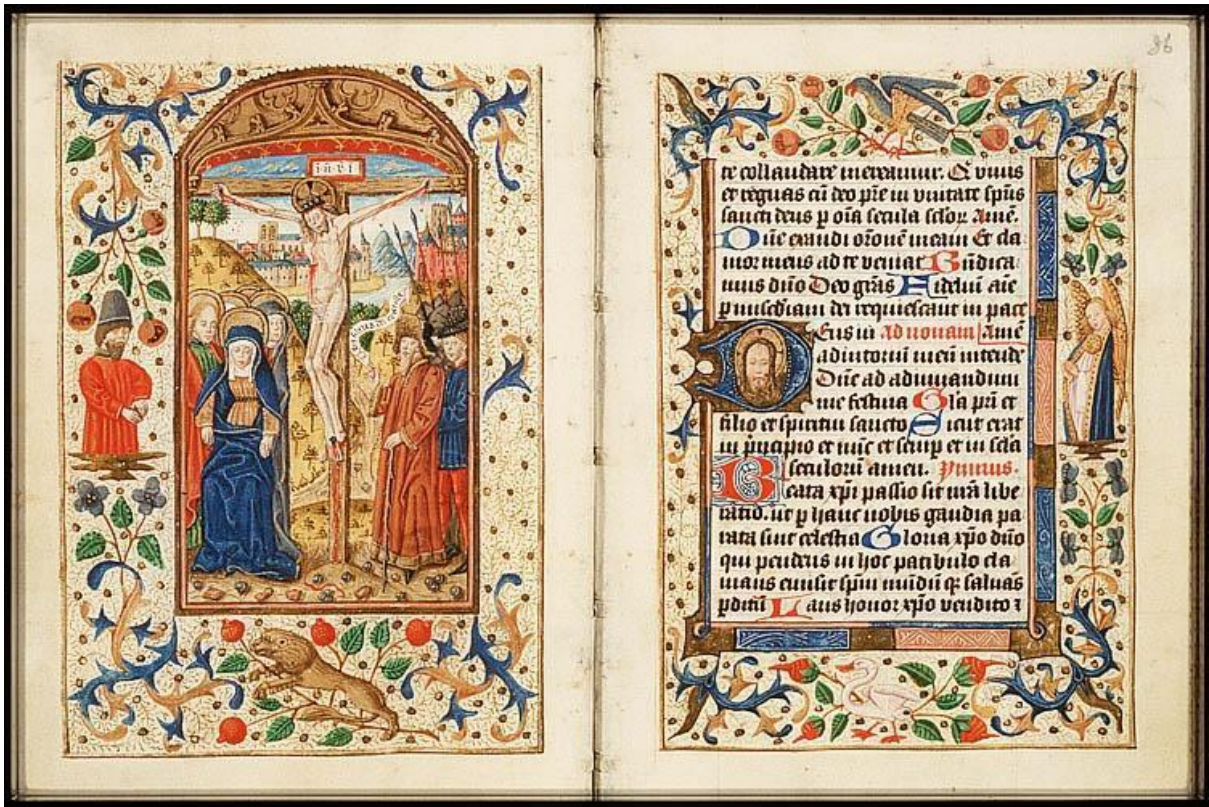 INRI
86
te collaudare mereamur. Q viuis
et regnas cū deo pr̄e in vnitate sp̄us
sancti deus p oīa secula sc̄lor Amē.
Dn̄e exaudi or̄onē meam Et cla
mor meus ad te veniat Bn̄dica
mus dn̄o Deo gr̄as Fideliū aīe
p miam dei requiescant in pace
Deus in Ad nonam Amē
adiutoriū meū intende
Dn̄e ad adiuuandum
me festina Gl̄a pr̄i et
filio et spiritui sancto Sicut erat
in prīcipio et nūc et semp et in sc̄la
seculorū amen. Ymnus.
Beata xp̄i passio sit nr̄a libe
ratio. ut p hanc nobis gaudia pa
rata sint celestia Gloria xp̄o dn̄o
qui pendens in hoc patibulo cla
mans emisit sp̄m mūdū q saluās
pditū Laus honor xp̄o vendito ⁊